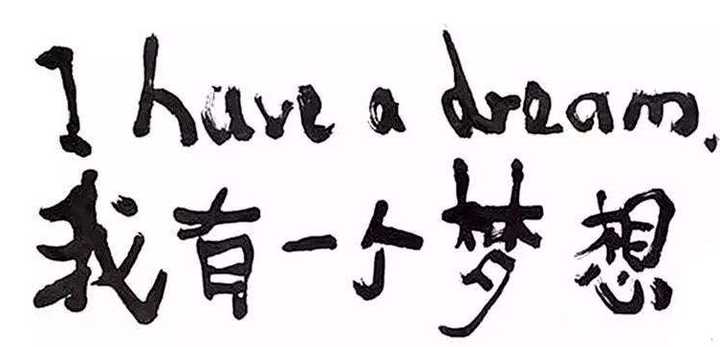 I have a dream.
我有一个梦想